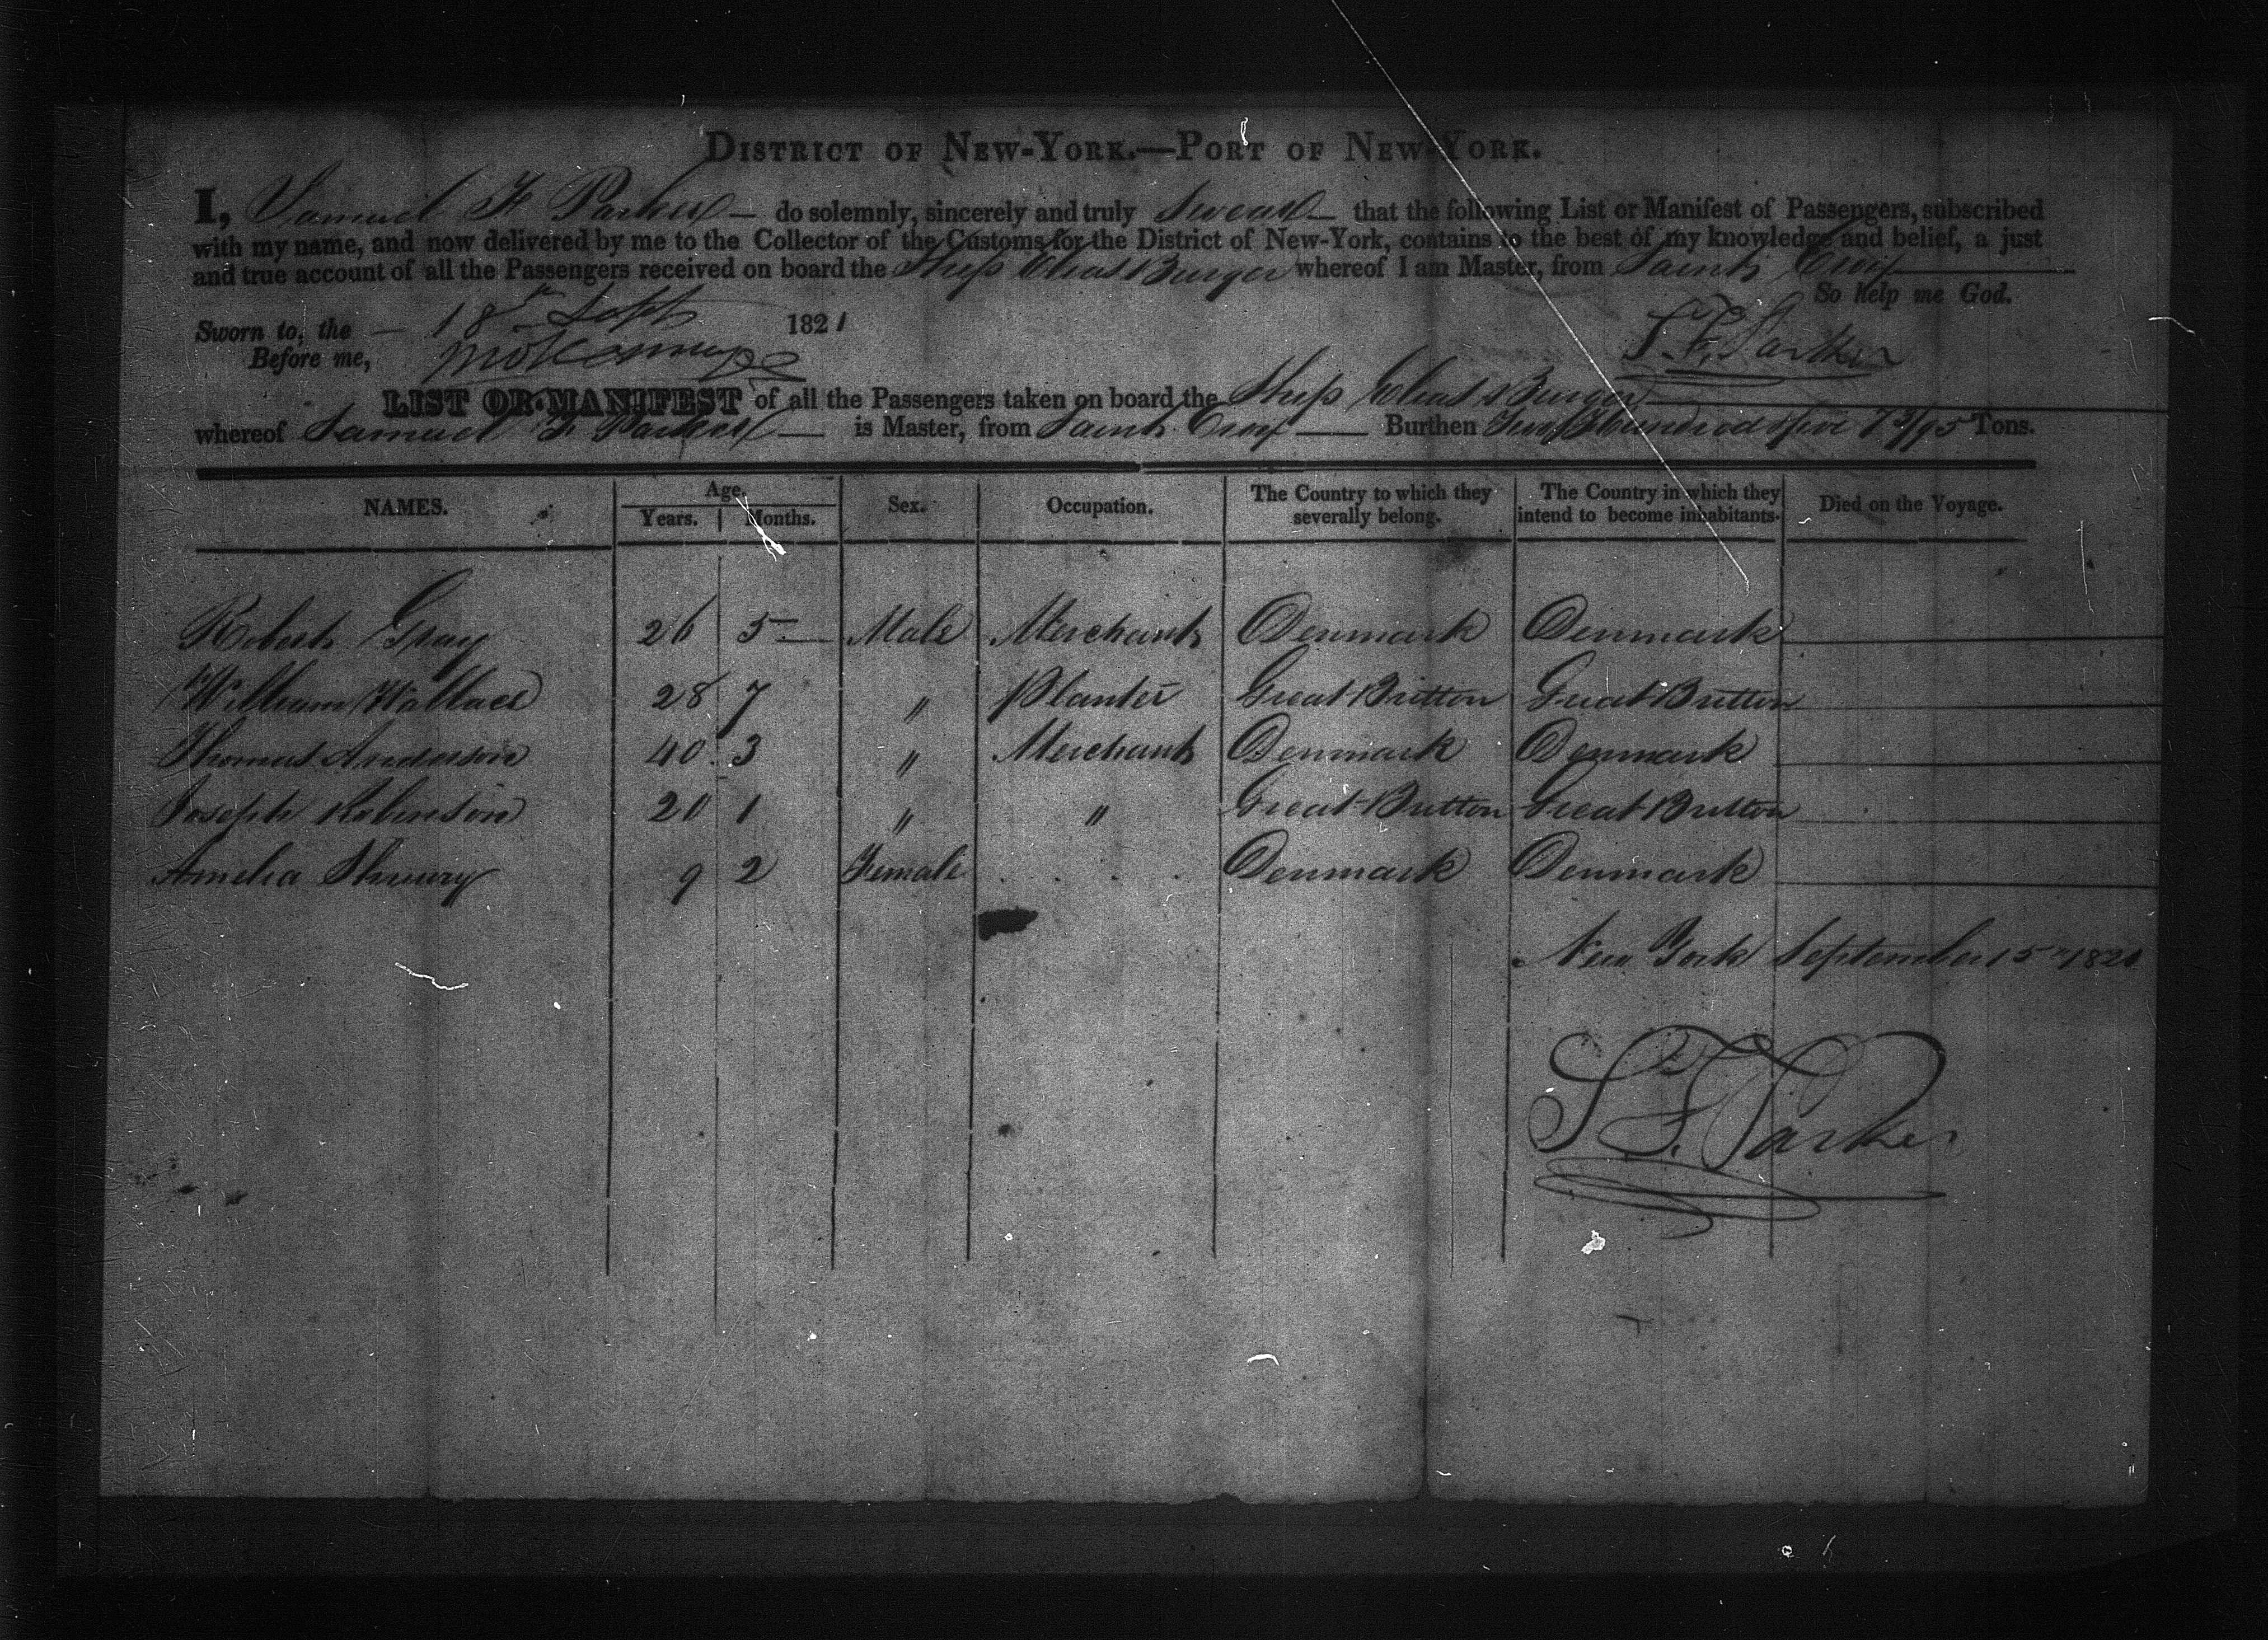 DISTRICT OF NEW-YORK.—PORT OF NEW-YORK.
I, Samuel F Parker — do solemnly, sincerely and truly Swear — that the following List or Manifest of Passengers, subscribed
with my name, and now delivered by me to the Collector of the Customs for the District of New-York, contains to the best of my knowledge and belief, a just
and true account of all the Passengers received on board the Ship Elias Burger whereof I am Master, from Saint Croix
So help me God.
Sworn to, the — 18th Sept 1821
Before me, S. F. Parker
LIST OR MANIFEST of all the Passengers taken on board the Ship Elias Burger
whereof Samuel F Parker — is Master, from Saint Croix — Burthen Two Hundred & five 73/95 Tons.
NAMES. Age. Years. Months. Sex. Occupation. The Country to which they severally belong. The Country in which they intend to become inhabitants. Died on the Voyage.
Robert Gray 26 5 — Male Merchant Denmark Denmark
William Wallace 28 7 " Planter Great Britton Great Britton
Thomas Anderson 40 3 " Merchant Denmark Denmark
Joseph Robinson 20 1 " " Great Britton Great Britton
Amelia 9 2 Female . . . . Denmark Denmark
New York September 15th 1821
S. F. Parker